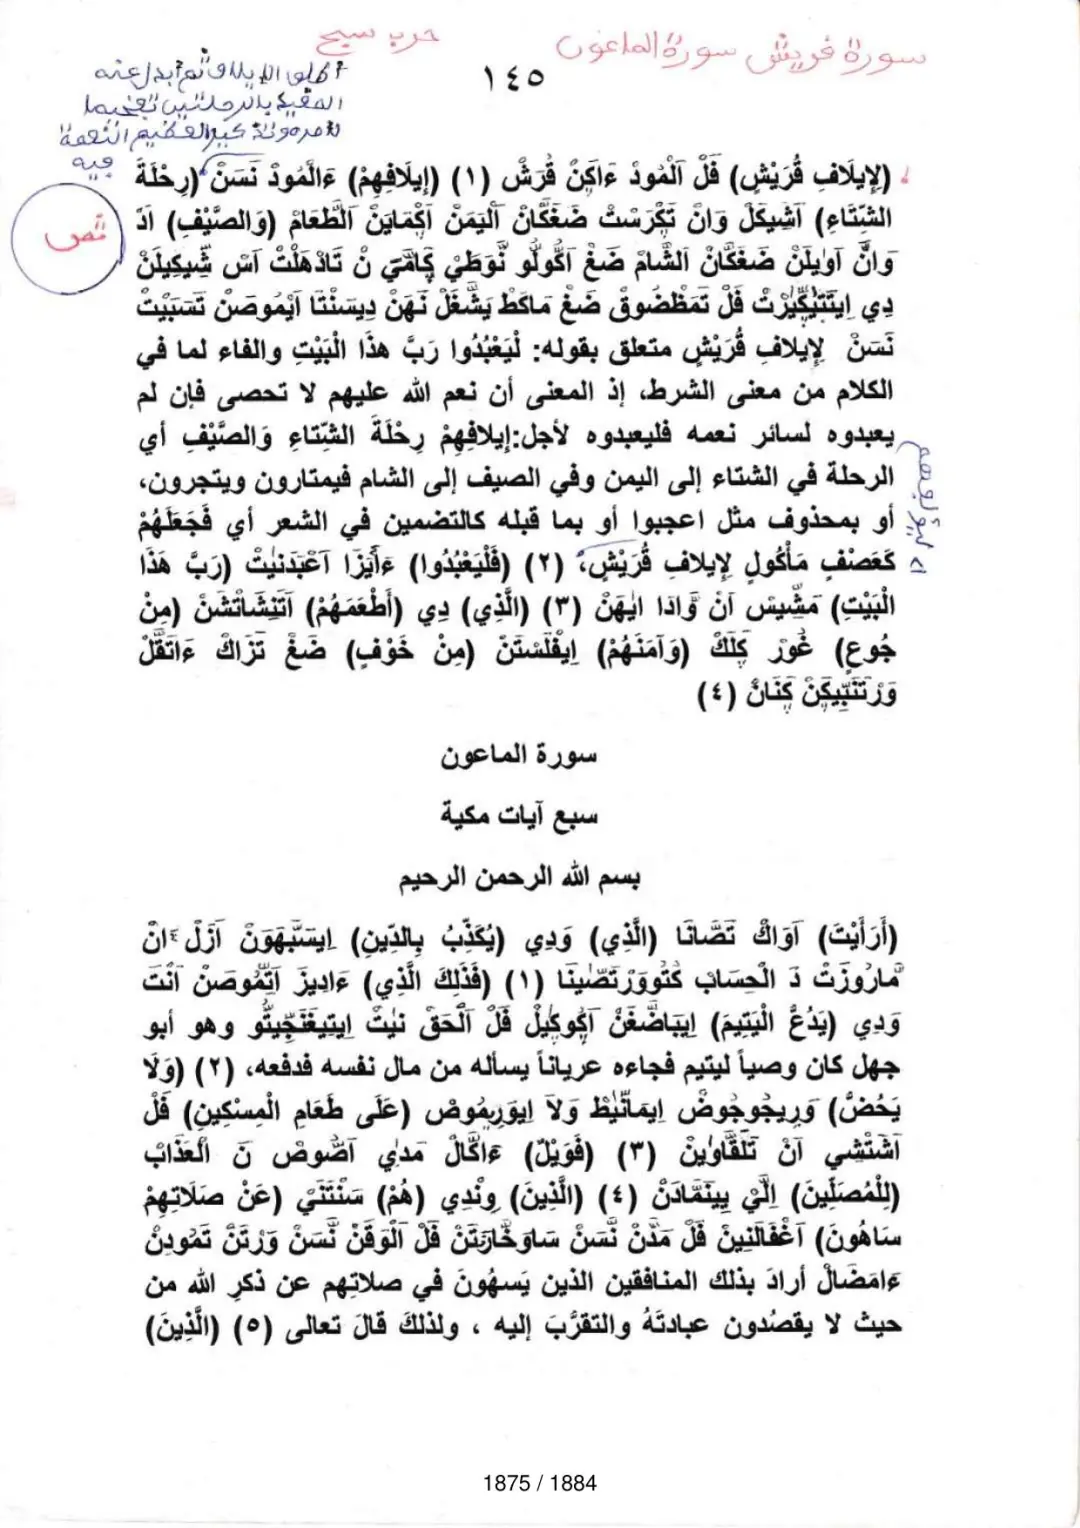 سورة قريش سورة الماعون
حزب سبح
١٤٥
أطلق الإيلاف ثم أبدل عنه
المقيد بالرحلتين تفخيما
لأمر وتذكير العظيم النعمة
فيه
نص
(لِإِيلَافِ قُرَيْشٍ) فَلْ الْمُودْ ءَاكِنْ قُرَشْ (١) (إِيلَافِهِمْ) ءَالْمُودْ نَسَنْ (رِحْلَةَ
الشِّتَاءِ) اَشِيكَلْ وَانْ تَكْرَسْتْ ضَغَكَانْ اَلْيَمَنْ اَكْمَايَنْ اَلطَّعَامْ (وَالصَّيْفِ) اَدْ
وَانْ اَوَيلَنْ ضَغَكَانْ اَلشَّامْ ضَغْ اَكُولُو نُوَطَيْ كَامَيْ نْ تَادْهَلْتْ اَسْ شِيكِيلَنْ
دِي اِيتَتِيكِيزْتْ فَلْ تَمَظْضُوقْ ضَغْ مَاكَطْ يَشْغَلْ نَهَنْ دِيسَنْتَا اَيْمُوصَنْ تَسَبَيْتْ
نَسَنْ لِإِيلافِ قُرَيْشٍ متعلق بقوله: لْيَعْبُدُوا رَبَّ هذَا الْبَيْتِ والفاء لما في
الكلام من معنى الشرط، إذ المعنى أن نعم الله عليهم لا تحصى فإن لم
يعبدوه لسائر نعمه فليعبدوه لأجل:إِيلافِهِمْ رِحْلَةَ الشِّتاءِ وَالصَّيْفِ أي
الرحلة في الشتاء إلى اليمن وفي الصيف إلى الشام فيمتارون ويتجرون،
أو بمحذوف مثل اعجبوا أو بما قبله كالتضمين في الشعر أي فَجَعَلَهُمْ
كَعَصْفٍ مَأْكُولٍ لِإِيلافِ قُرَيْشٍ، (٢) (فَلْيَعْبُدُوا) ءَأَيَزَا اَعْبَدَنيْتْ (رَبَّ هَذَا
الْبَيْتِ) مَشِّيسْ اَنْ وَّادَا ايْهَنْ (٣) (الَّذِي) دِي (أَطْعَمَهُمْ) اَتَنِشَاتْشَنْ (مِنْ
جُوعٍ) غُورْ كَلَكْ (وَآمَنَهُمْ) اِيفْلَسْتَنْ (مِنْ خَوْفٍ) ضَغْ تَزَاكْ ءَاتَقَّلْ
وَرْتَنَبِّيكَنْ كَنَانْ (٤)
سورة الماعون
سبع آيات مكية
بسم الله الرحمن الرحيم
(أَرَأَيْتَ) اَوَاكْ تَصَّانَا (الَّذِي) وَدِي (يُكَذِّبُ بِالدِّينِ) اِيسَّبَهَوَنْ اَزَلْ انْ
مَّارُوزَتْ دَ الْحِسَابْ كَتُووَرْتَصِّينَا (١) (فَذَلِكَ الَّذِي) ءَادِيزَ اَتِّمُوصَنْ اَنْتَ
وَدِي (يَدُعُّ الْيَتِيمَ) اِيبَاضَّغَنْ اَكُوكِيلْ فَلْ اَلْحَقْ نيْتْ اِيتِيغَنْجِيتُو وهو أبو
جهل كان وصياً ليتيم فجاءه عرياناً يسأله من مال نفسه فدفعه، (٢) (وَلَا
يَحُضُّ) وَرِيجُوجُوضْ اِيمَانْيْطْ وَلَا اِيوَرِيمُوصْ (عَلَى طَعَامِ الْمِسْكِينِ) فَلْ
اَشَتْشِي اَنْ تَلَقَّاوِينْ (٣) (فَوَيْلٌ) ءَاكَّالْ مَدَايْ اَضُوصْ نَ الْعَذَابْ
(لِلْمُصَلِّينَ) اِلَّيْ يِينَمَّادَنْ (٤) (الَّذِينَ) وِنْدِي (هُمْ) سَنْتَنَيْ (عَنْ صَلَاتِهِمْ
سَاهُونَ) اَغْفَالَنِينْ فَلْ مَدَّنْ نَّسَنْ سَاوَخَّارَتَنْ فَلْ اَلْوَقَنْ نَّسَنْ وَرْتَنْ تَمُودِنْ
ءَامَضَالْ أرادَ بذلك المنافقين الذين يَسهُونَ في صلاتِهم عن ذكرِ الله من
حيث لا يقصُدون عبادتَهُ والتقرُّبَ إليه ، ولذلكَ قالَ تعالى (٥) (الَّذِينَ)
1875 / 1884